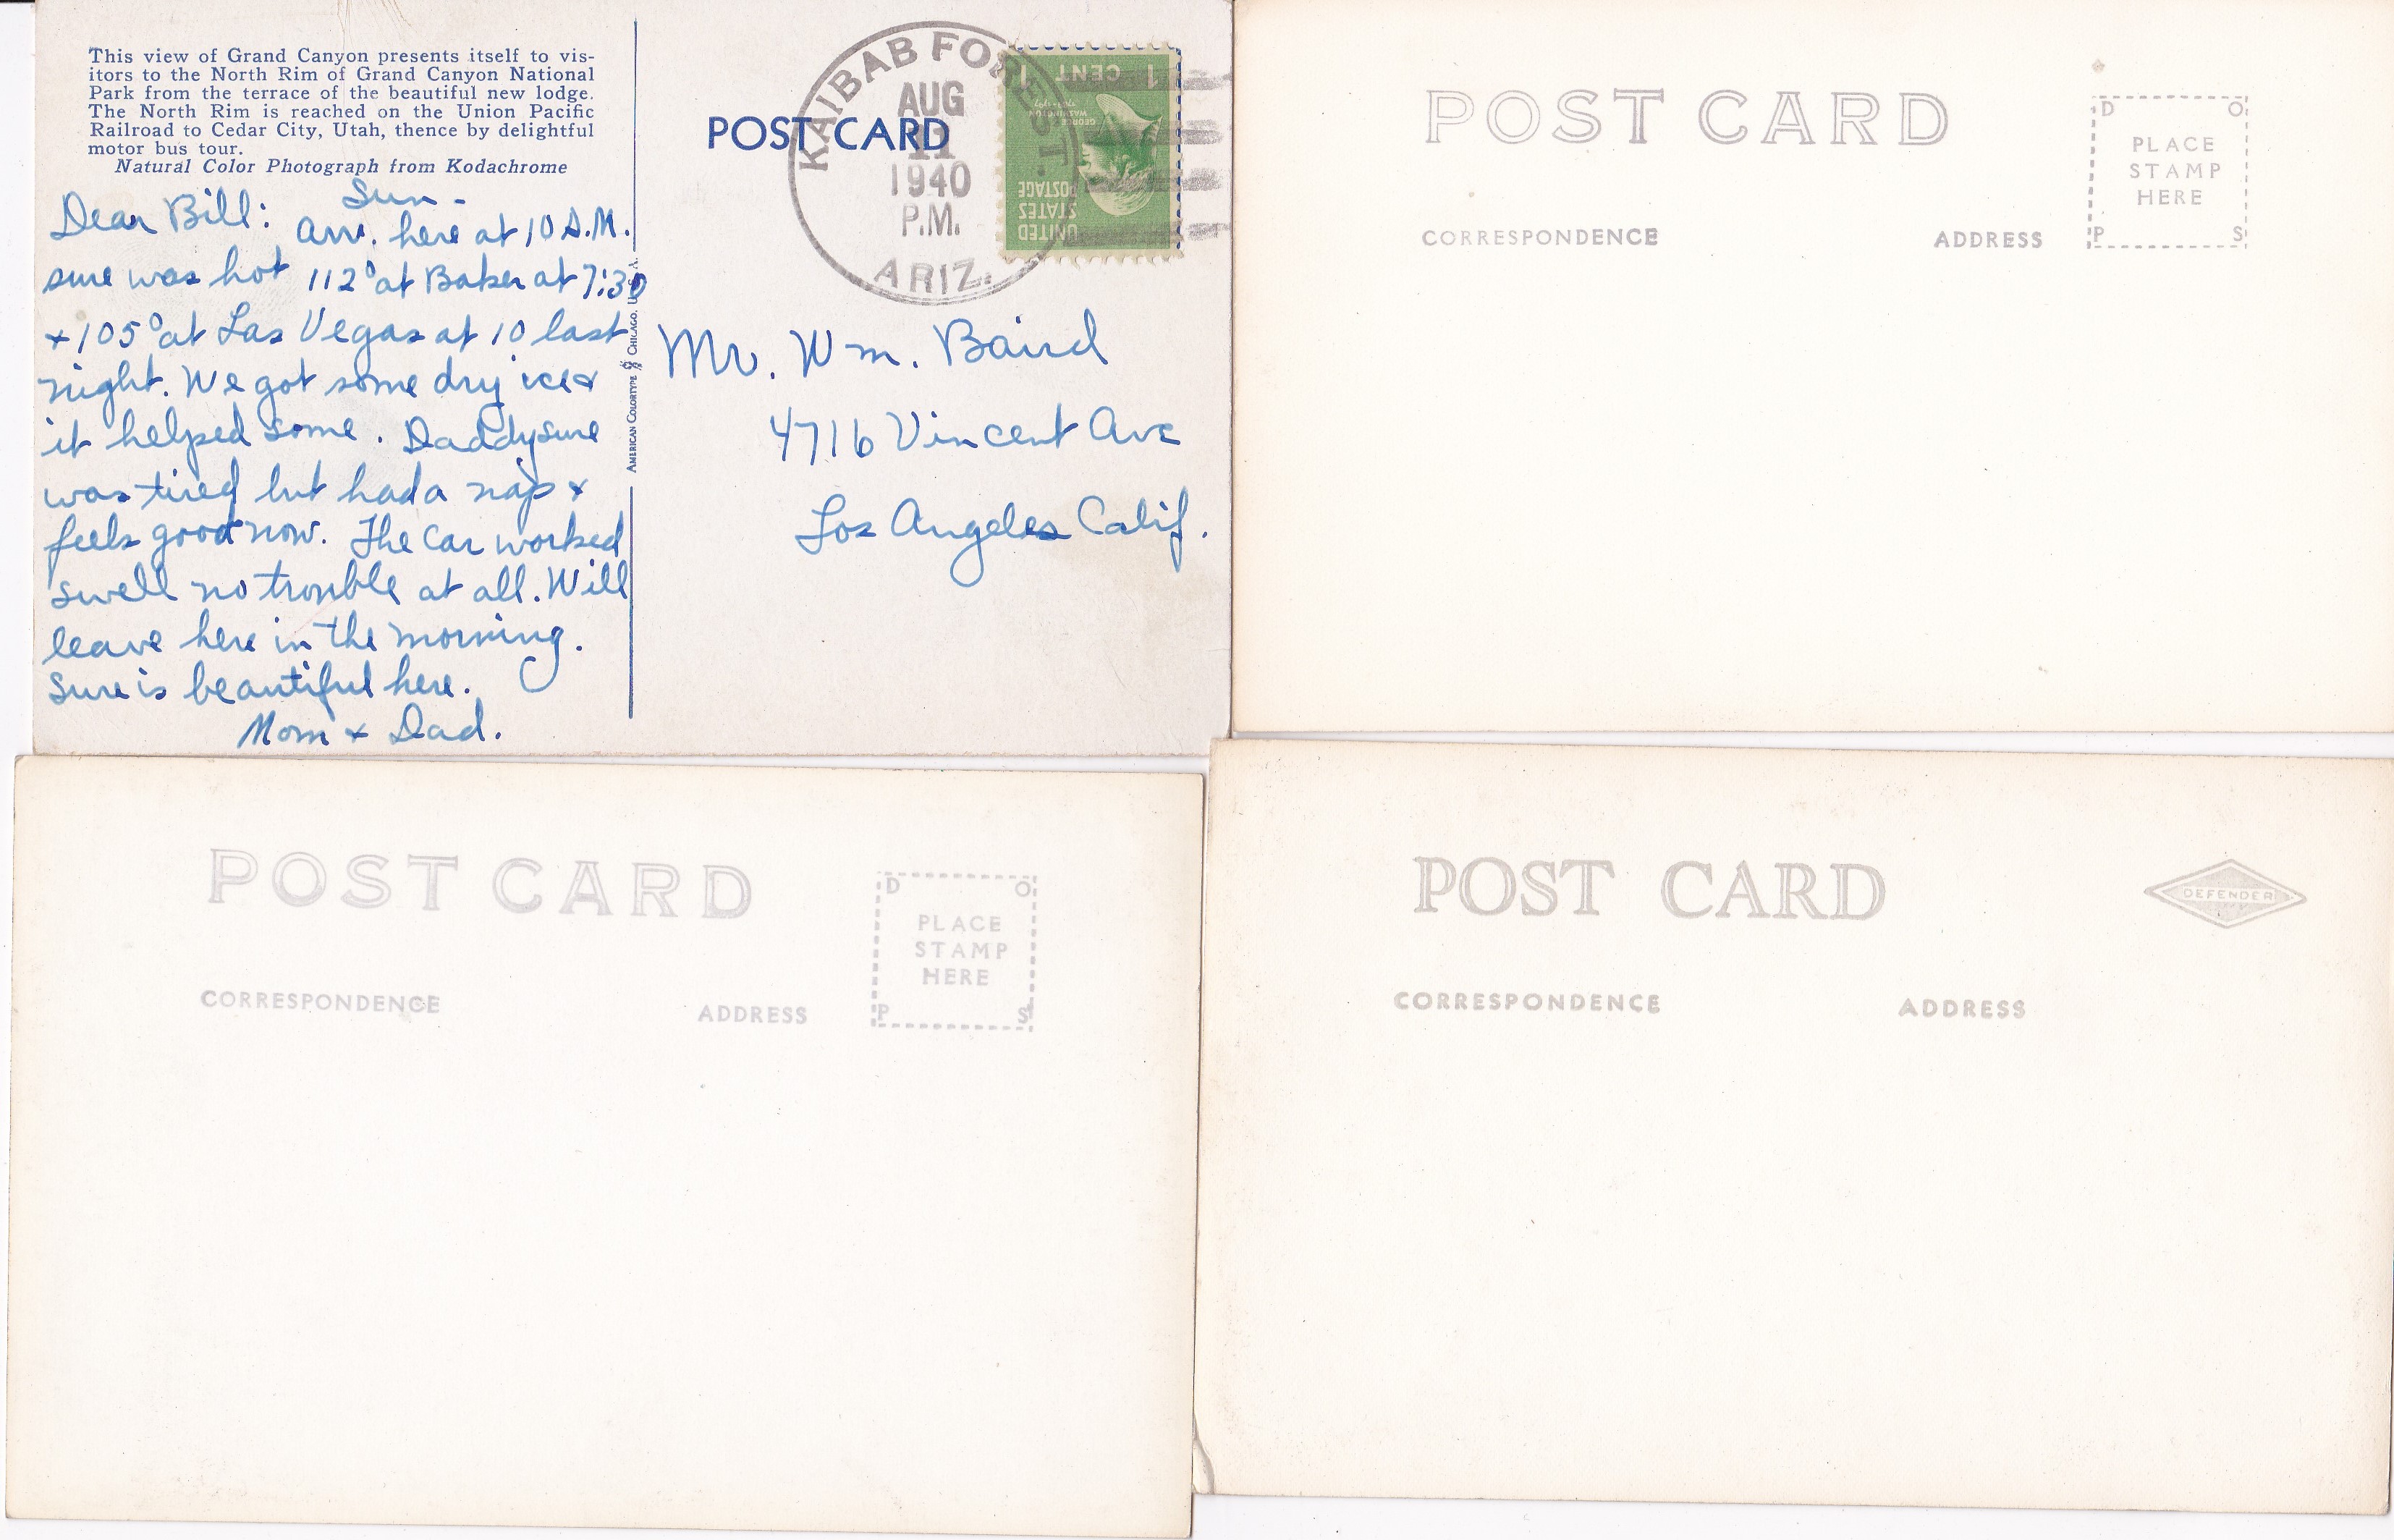 This view of Grand Canyon presents itself to vis-
itors to the North Rim of Grand Canyon National
Park from the terrace of the beautiful new lodge.
The North Rim is reached on the Union Pacific
Railroad to Cedar City, Utah, thence by delightful
motor bus tour.
Natural Color Photograph from Kodachrome
Sun -
Dear Bill: Arr. here at 10 A.M.
sure was hot 112° at Baker at 7:30
+ 105° at Las Vegas at 10 last
night. We got some dry ice &
it helped some. Daddy sure
was tired but had a nap &
feels good now. The car worked
swell no trouble at all. Will
leave here in the morning.
Sure is beautiful here.
Mom & Dad.
AMERICAN COLORTYPE CHICAGO, U. S. A.
POST CARD
KAIBAB FOREST.
AUG
11
1940
P.M.
ARIZ.
1 CENT 1
GEORGE
WASHINGTON
UNITED
STATES
POSTAGE
Mr. Wm. Baird
4716 Vincent Ave
Los Angeles Calif.
POST CARD
D O
PLACE
STAMP
HERE
P S
CORRESPONDENCE ADDRESS
POST CARD
D O
PLACE
STAMP
HERE
P S
CORRESPONDENCE ADDRESS
POST CARD
DEFENDER
CORRESPONDENCE ADDRESS